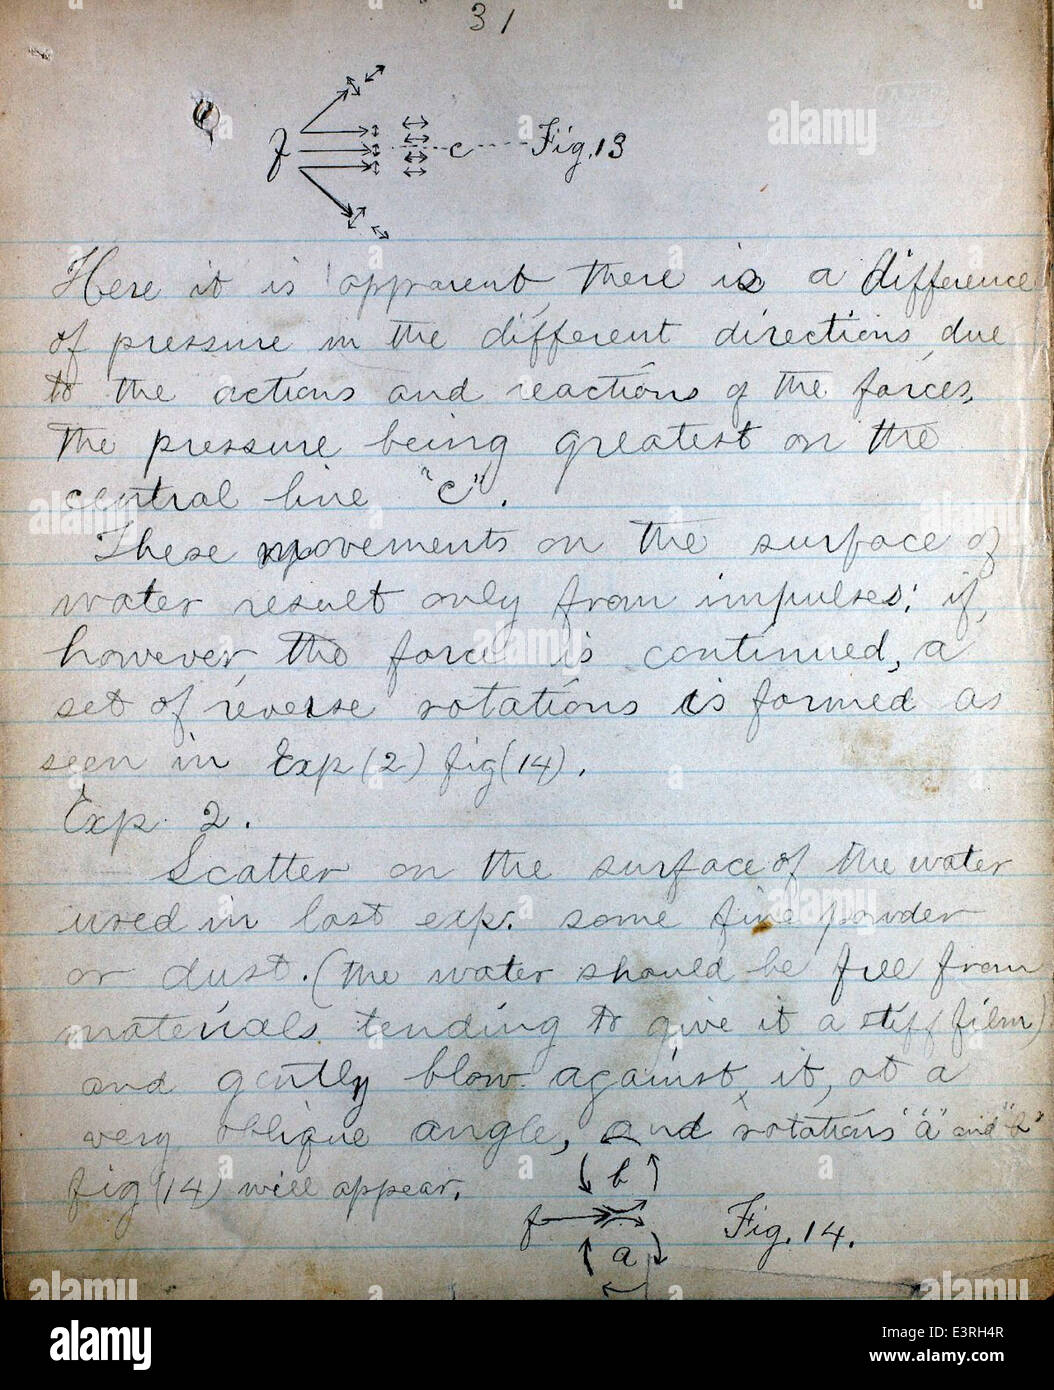 31
f c Fig. 13
Here it is apparent, there is a difference
of pressure in the different directions, due
to the actions and reactions of the forces,
the pressure being greatest on the
central line "c".
These movements on the surface of
water result only from impulses; if,
however, the force is continued, a
set of reverse rotations is formed as
seen in Exp (2) fig (14).
Exp. 2.
Scatter on the surface of the water
used in last exp. some fine powder
or dust. (the water should be free from
materials tending to give it a stiff film)
and gently blow against it, at a
very oblique angle, and rotations "a" and "b"
fig (14) will appear.
b
f Fig. 14.
a
alamy
Image ID: E3RH4R
www.alamy.com